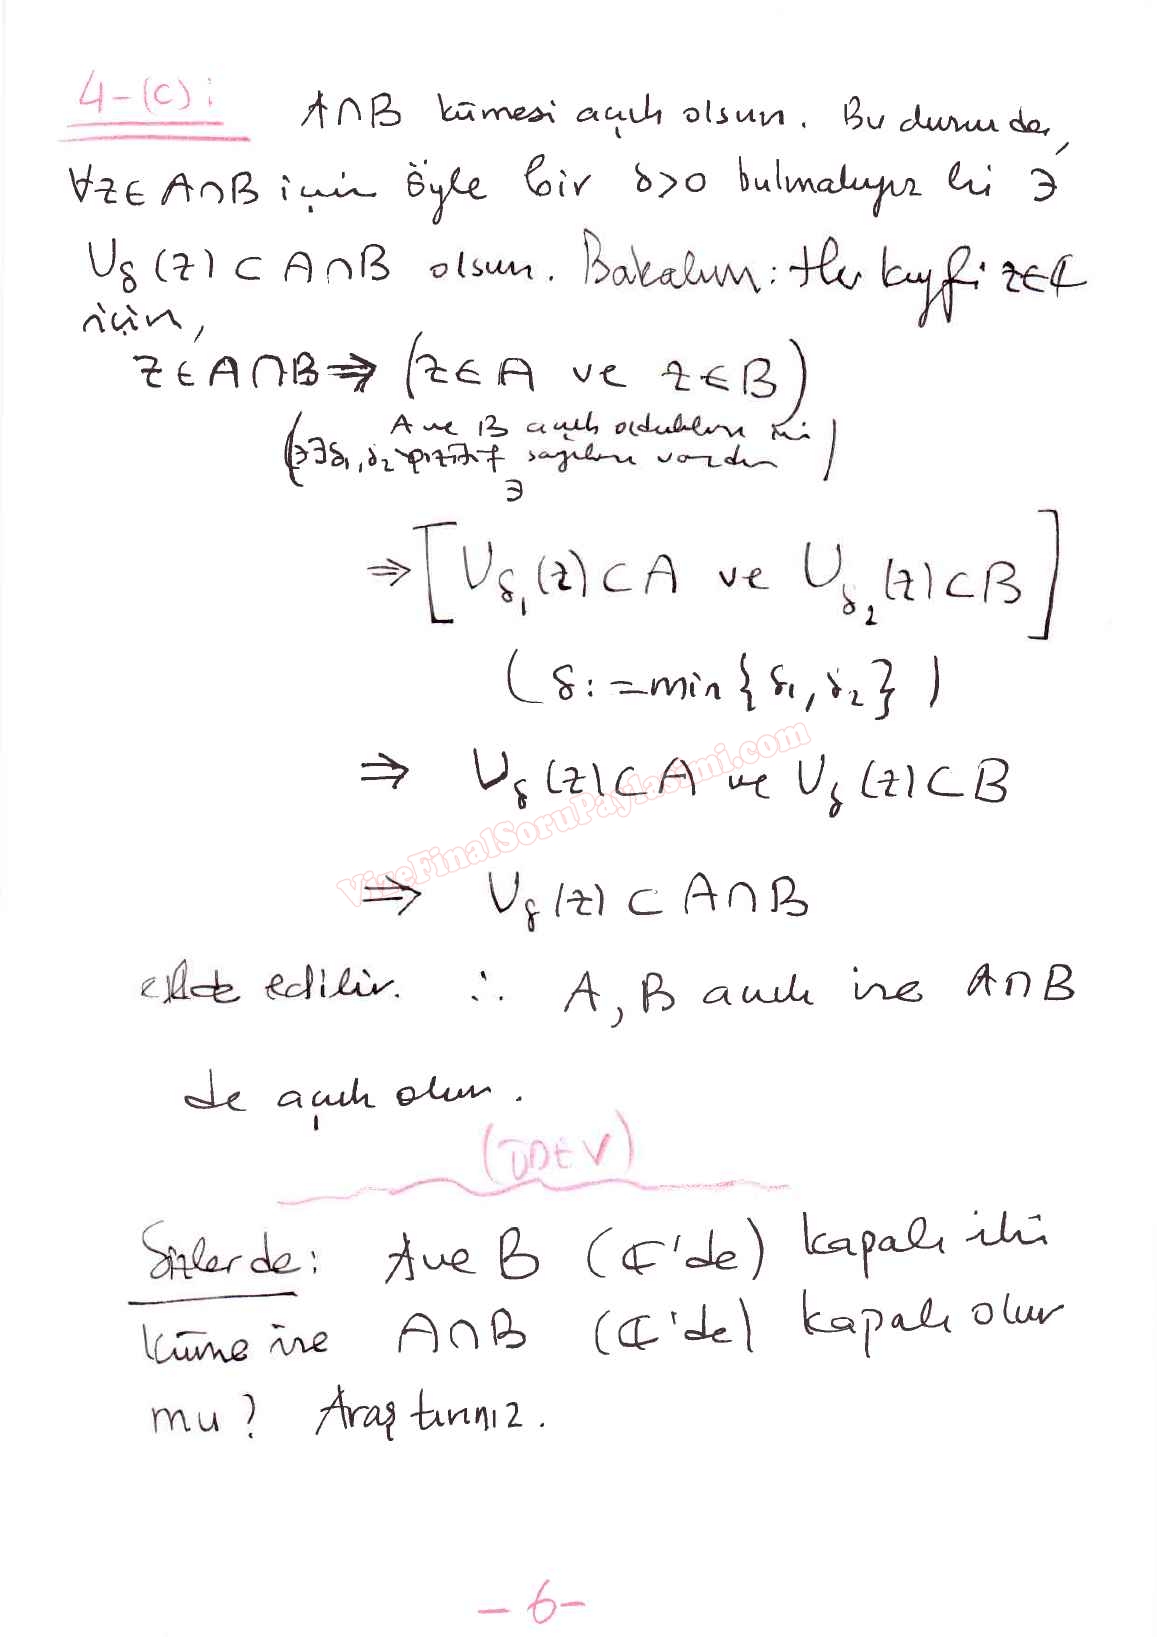 4-(c):
A∩B kümesi açık olsun. Bu durumda,
∀z∈A∩B için öyle bir δ>0 bulmalıyız ki ∋
U_δ(z)⊂A∩B olsun. Bakalım: Her keyfi z∈ℂ
için,
z∈A∩B⇒(z∈A ve z∈B)
A ve B açık oldukları için
(∃δ₁,δ₂ pozitif sayıları vardır)
∋
⇒[U_δ₁(z)⊂A ve U_δ₂(z)⊂B]
(δ:=min{δ₁,δ₂})
⇒ U_δ(z)⊂A ve U_δ(z)⊂B
VizeFinalSoruPaylasimi.com
⇒ U_δ(z)⊂A∩B
elde edilir. ∴ A, B açık ise A∩B
de açık olur.
(ÖDEV)
Sizler de: A ve B (ℂ'de) kapalı iki
küme ise A∩B (ℂ'de) kapalı olur
mu? Araştırınız.
-6-